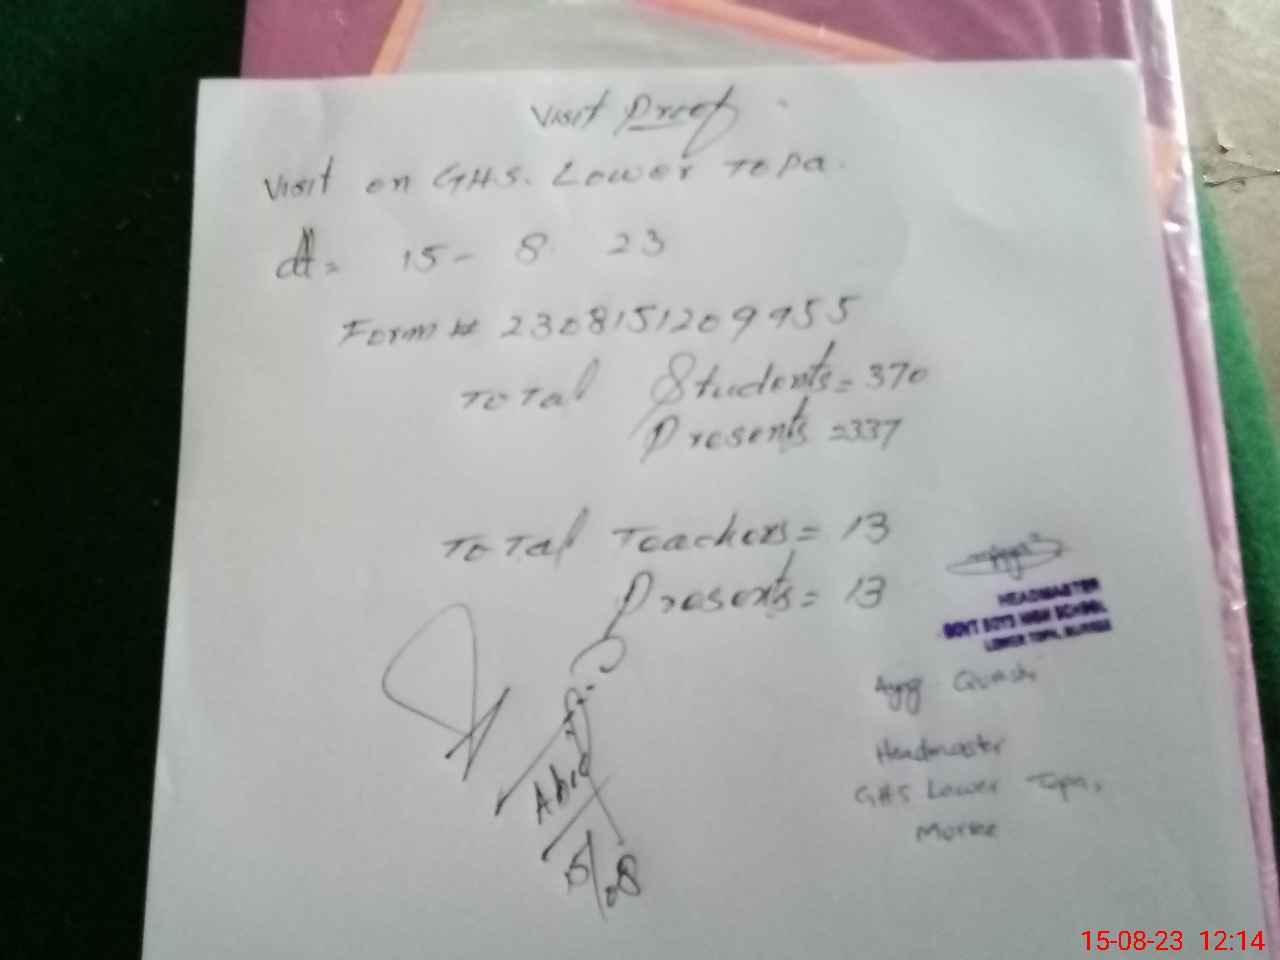 Visit Proof
Visit on G.H.S. Lower Topa.
dt = 15 - 8. 23
Form # 2308151209955
Total Students = 370
Presents = 337
Total Teachers = 13
Presents = 13
HEADMASTER
GOVT BOYS HIGH SCHOOL
LOWER TOPA, MURREE
Headmaster
GHS Lower Topa,
Murree
Abid
15/08
15-08-23 12:14